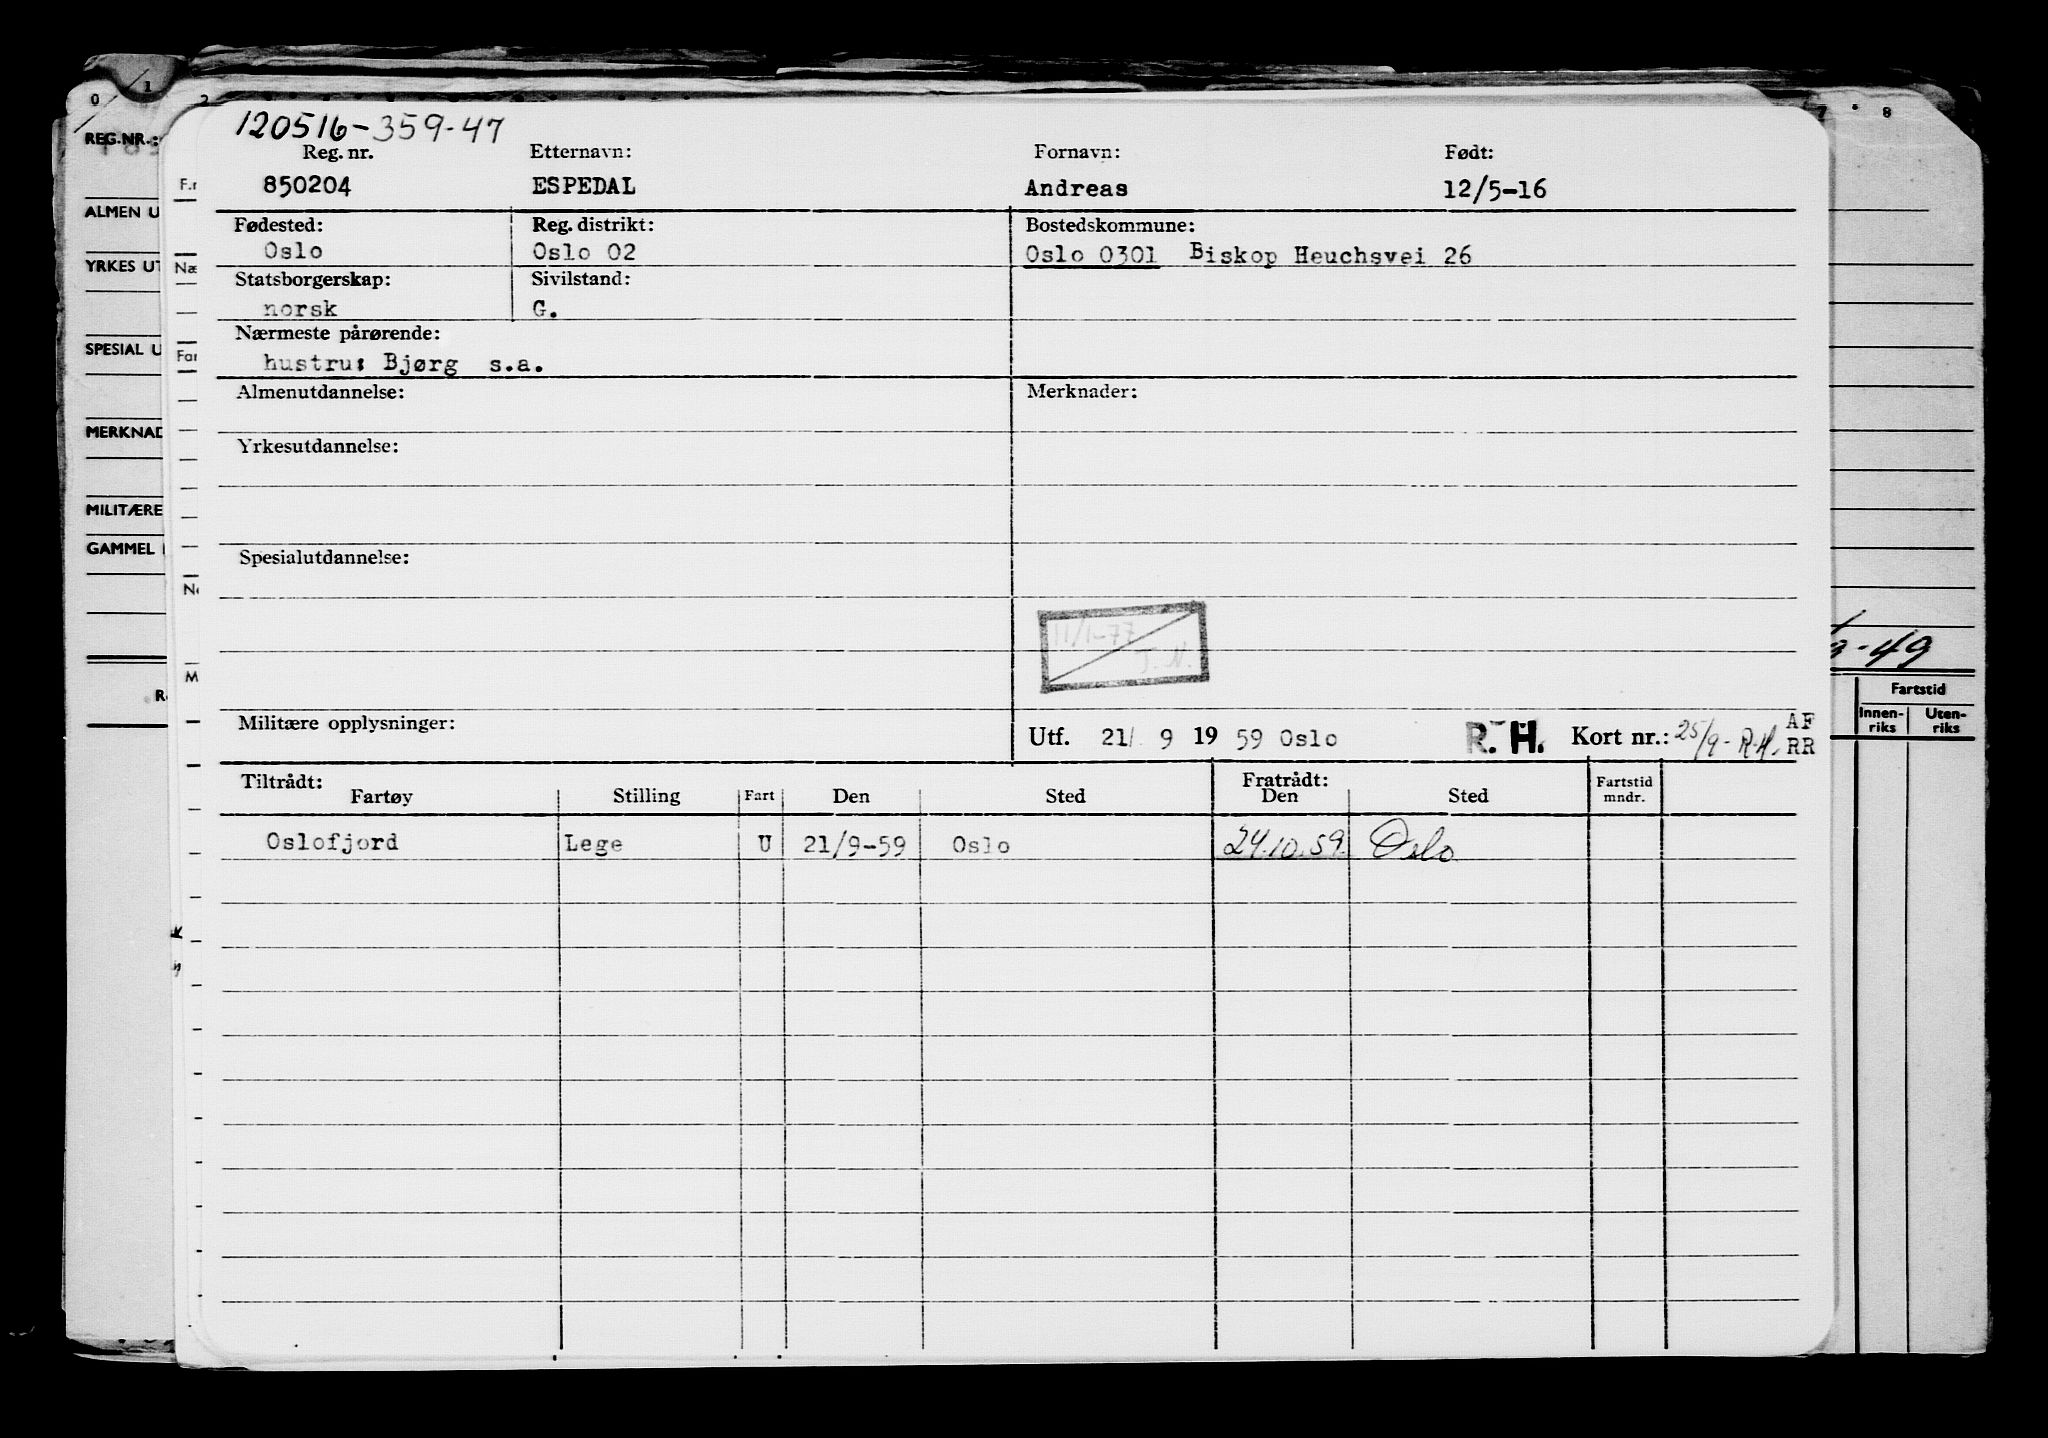 0 1 2 7 8
REG.NR.:
120516-359-47
Reg. nr. Etternavn: Fornavn: Født:
850204 ESPEDAL Andreas 12/5-16
Fødested: Reg. distrikt: Bostedskommune:
Oslo Oslo 02 Oslo 0301 Biskop Heuchsvei 26
Statsborgerskap: Sivilstand:
norsk G.
Nærmeste pårørende:
hustru: Bjørg s.a.
Almenutdannelse: Merknader:
Yrkesutdannelse:
Spesialutdannelse:
11/1-77
T.N.
Militære opplysninger: Utf. 21/ 9 19 59 Oslo R.H. Kort nr.: 25/9- R.H. AF
RR
Tiltrådt: Fratrådt:
Fartøy Stilling Fart Den Sted Den Sted Fartstid mndr.
Oslofjord Lege U 21/9-59 Oslo 24.10.59. Oslo
ALMEN U
YRKES UT
SPESIAL U
MERKNAD
MILITÆRE
GAMMEL
F.r
Næ
Far
M
-49
Fartstid
Innen-riks Uten-riks